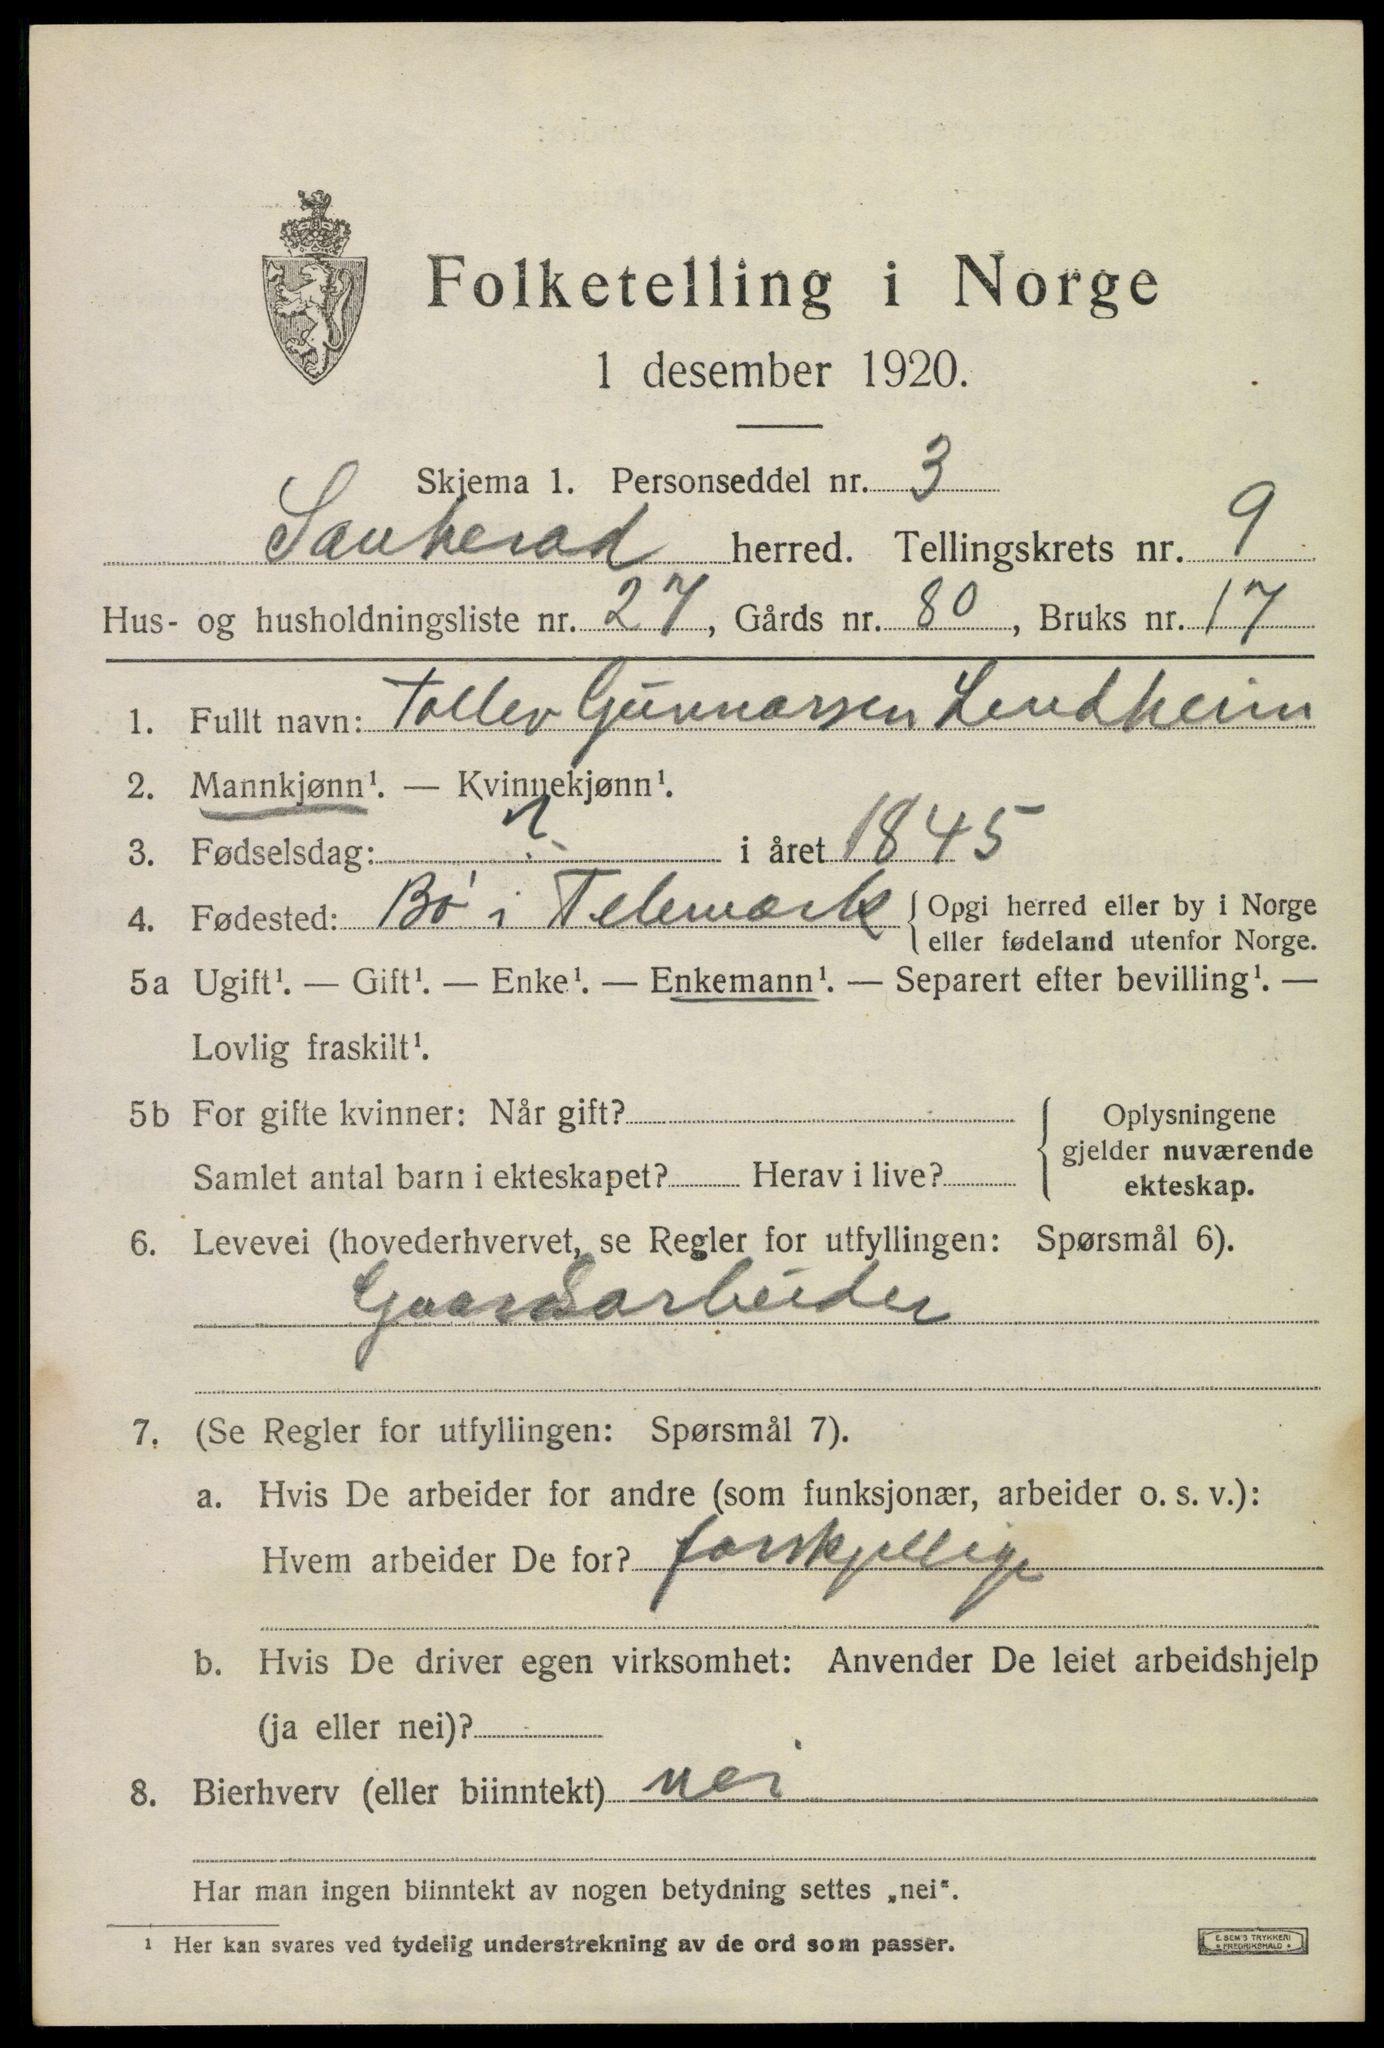 Folketelling i Norge
1 desember 1920.
Skjema 1. Personseddel nr. 3
Sauherad herred. Tellingskrets nr. 9
Hus- og husholdningsliste nr. 27, Gårds nr. 80, Bruks nr. 17
1. Fullt navn: Tollev Gunnarsen Lindheim
2. Mannkjønn¹. — Kvinnekjønn¹.
3. Fødselsdag: ? i året 1845
4. Fødested: Bø i Telemark { Opgi herred eller by i Norge
eller fødeland utenfor Norge.
5a Ugift¹. — Gift¹. — Enke¹. — Enkemann¹. — Separert efter bevilling¹. —
Lovlig fraskilt¹.
5b For gifte kvinner: Når gift? { Oplysningene
gjelder nuværende
Samlet antal barn i ekteskapet? Herav i live? ekteskap.
6. Levevei (hovederhvervet, se Regler for utfyllingen: Spørsmål 6).
Gaardsarbeider
7. (Se Regler for utfyllingen: Spørsmål 7).
a. Hvis De arbeider for andre (som funksjonær, arbeider o. s. v.):
Hvem arbeider De for? forskjellige
b. Hvis De driver egen virksomhet: Anvender De leiet arbeidshjelp
(ja eller nei)?
8. Bierhverv (eller biinntekt) nei
Har man ingen biinntekt av nogen betydning settes „nei".
¹ Her kan svares ved tydelig understrekning av de ord som passer.
E. SEM'S TRYKKERI
• FREDRIKSHALD •